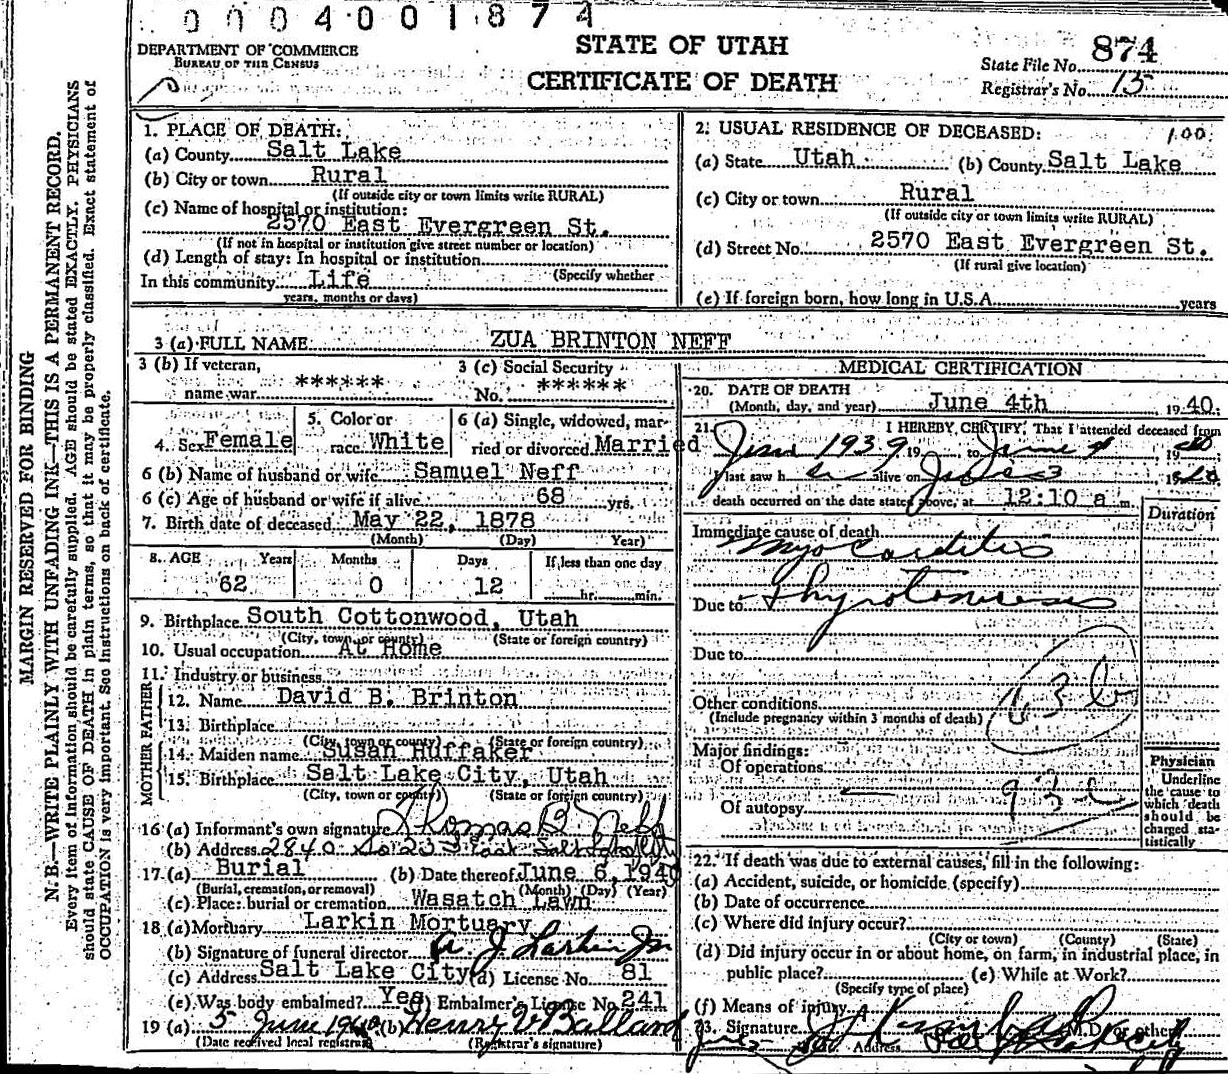 0004001874
DEPARTMENT OF COMMERCE
BUREAU OF THE CENSUS
STATE OF UTAH
CERTIFICATE OF DEATH
State File No. 874
Registrar's No. 15
MARGIN RESERVED FOR BINDING
N. B.—WRITE PLAINLY WITH UNFADING INK—THIS IS A PERMANENT RECORD.
Every item of information should be carefully supplied. AGE should be stated EXACTLY. PHYSICIANS
should state CAUSE OF DEATH in plain terms, so that it may be properly classified. Exact statement of
OCCUPATION is very important. See instructions on back of certificate.
1. PLACE OF DEATH:
(a) County Salt Lake
(b) City or town Rural
(If outside city or town limits write RURAL)
(c) Name of hospital or institution:
2570 East Evergreen St.
(If not in hospital or institution give street number or location)
(d) Length of stay: In hospital or institution
(Specify whether
In this community Life
years, months or days)
2. USUAL RESIDENCE OF DECEASED: 1.00
(a) State Utah (b) County Salt Lake
(c) City or town Rural
(If outside city or town limits write RURAL)
(d) Street No. 2570 East Evergreen St.
(If rural give location)
(e) If foreign born, how long in U.S.A. years
3 (a) FULL NAME ZUA BRINTON NEFF
3 (b) If veteran,
name war ******
3 (c) Social Security
No. ******
4. Sex Female
5. Color or
race White
6 (a) Single, widowed, mar-
ried or divorced Married
6 (b) Name of husband or wife Samuel Neff
6 (c) Age of husband or wife if alive 68 yrs.
7. Birth date of deceased May 22, 1878
(Month) (Day) Year)
8. AGE Years Months Days If less than one day
62 0 12 hr. min.
9. Birthplace South Cottonwood, Utah
(City, town, or county) (State or foreign country)
10. Usual occupation At Home
11. Industry or business
FATHER
12. Name David B. Brinton
13. Birthplace
(City, town or county) (State or foreign country)
MOTHER
14. Maiden name Susan Huffaker
15. Birthplace Salt Lake City, Utah
(City, town or county) (State or foreign country)
16 (a) Informant's own signature Thomas B Neff
(b) Address 2840 So 23 East Salt Lake City
17. (a) Burial (b) Date thereof June 6, 1940
(Burial, cremation, or removal) (Month) (Day) (Year)
(c) Place: burial or cremation Wasatch Lawn
18 (a) Mortuary Larkin Mortuary
(b) Signature of funeral director A. J. Larkin Jr
(c) Address Salt Lake City (d) License No. 81
(e) Was body embalmed? Yes (f) Embalmer's License No. 241
19 (a) 5 June 1940 (b) Henry V Ballard
(Date received local registrar) (Registrar's signature)
MEDICAL CERTIFICATION
20. DATE OF DEATH
(Month, day, and year) June 4th 1940
21. I HEREBY CERTIFY, That I attended deceased from
1939, 19 to June 4, 1940
I last saw h er alive on 3 1940
death occurred on the date stated above, at 12:10 a m.
Duration
Immediate cause of death
Myocarditis
Due to Thyrotoxicosis
Due to
Other conditions
(Include pregnancy within 3 months of death)
63 b
Major findings:
Of operations
93 c
Of autopsy —
Physician
Underline
the cause to
which death
should be
charged sta-
tistically
22. If death was due to external causes, fill in the following:
(a) Accident, suicide, or homicide (specify)
(b) Date of occurrence
(c) Where did injury occur?
(City or town) (County) (State)
(d) Did injury occur in or about home, on farm, in industrial place, in
public place? (e) While at Work?
(Specify type of place)
(f) Means of injury
23. Signature (M.D. or other)
Address